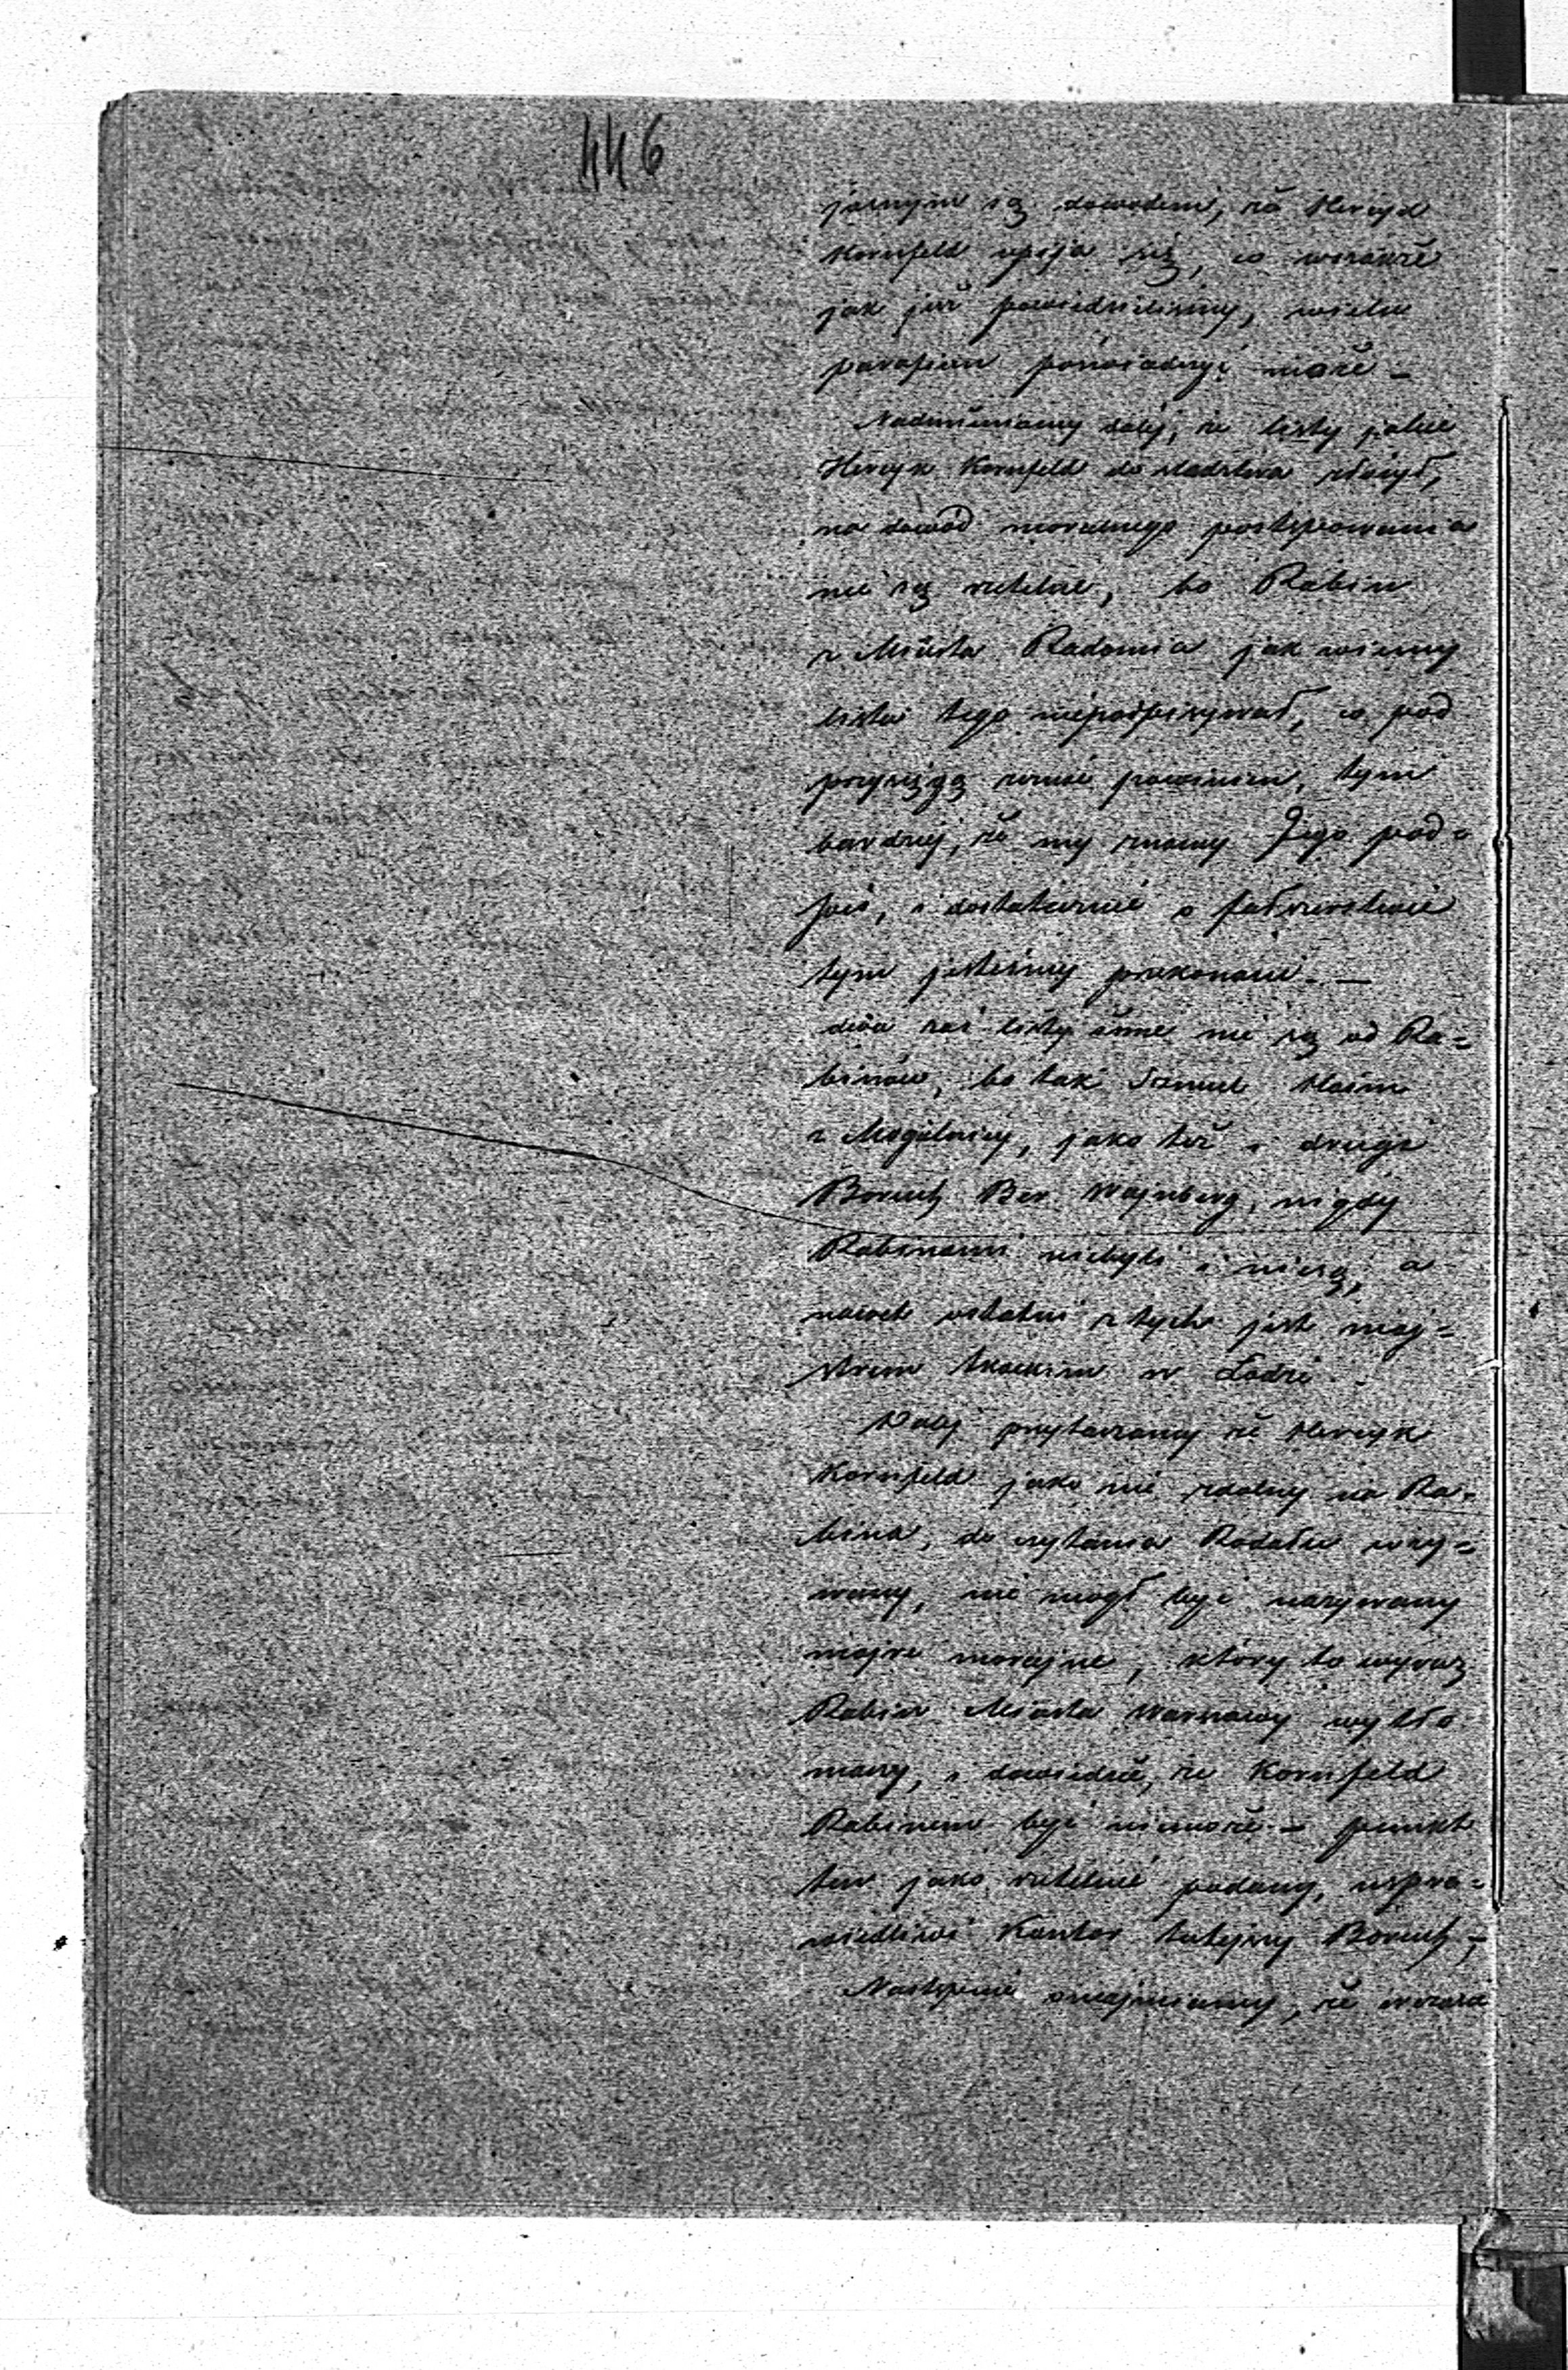 446
jasnym są dowodem, że Hercyk
Kornfeld upija się, co wszakże
jak już powiedzieliśmy, wielu
parafian poświadczyć może –
Nadmieniamy dalej, że listy jakie
Hercyk Kornfeld do śledztwa złożył,
na dowód moralnego postępowania
nie są rzetelne, bo Rabin
z Miasta Radomia jak wiemy
listu tego niepodpisywał, co pod
przysięgą zeznać powinien, tym
bardziej, że my znamy Jego pod=
pis, i dostatecznie o fałszerstwie
tym jesteśmy przekonani. —
dwa zaś listy inne nie są od Ra=
binów, bo tak Szmul Haim
z Mogielnicy, jako też i drugi
Boruch Ber Wajnberg, nigdy
Rabinami niebyli i niesą, a
nawet ostatni z tych jest maj=
strem tkackim w Łodzi.
Dalej przytaczamy że Hercyk
Kornfeld jako nie zdolny na Ra=
bina, do czytania Rodału wzy=
wany, nie mógł być nazywany
majre morajne, który to wyraz
Rabin Miasta Warszawy wytło
maczy, i dowiedzie, że Kornfeld
Rabinem być niemoże – punkt
ten jako rzetelnie podany, uspra=
wiedliwi Kantor tutejszy Boruch,
Następnie oznajmiamy, że